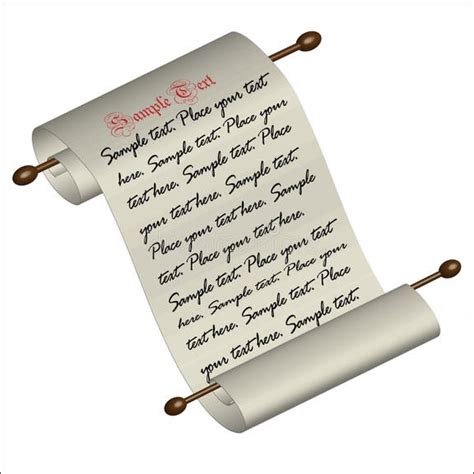 Sample Text
Sample text. Place your text
here. Sample text. Place your
text here. Sample text. Place
your text here. Sample text.
Place your text here. Sample
text. Place your text here.
Sample text. Place your text
here. Sample text. Place your
text here. Sample text. Place
your text here. Sample text.